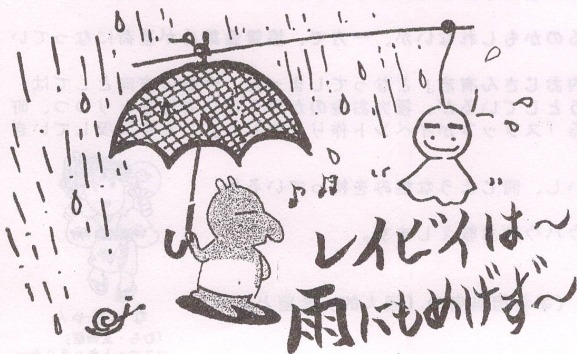 レイビイは〜
雨にもめげず〜